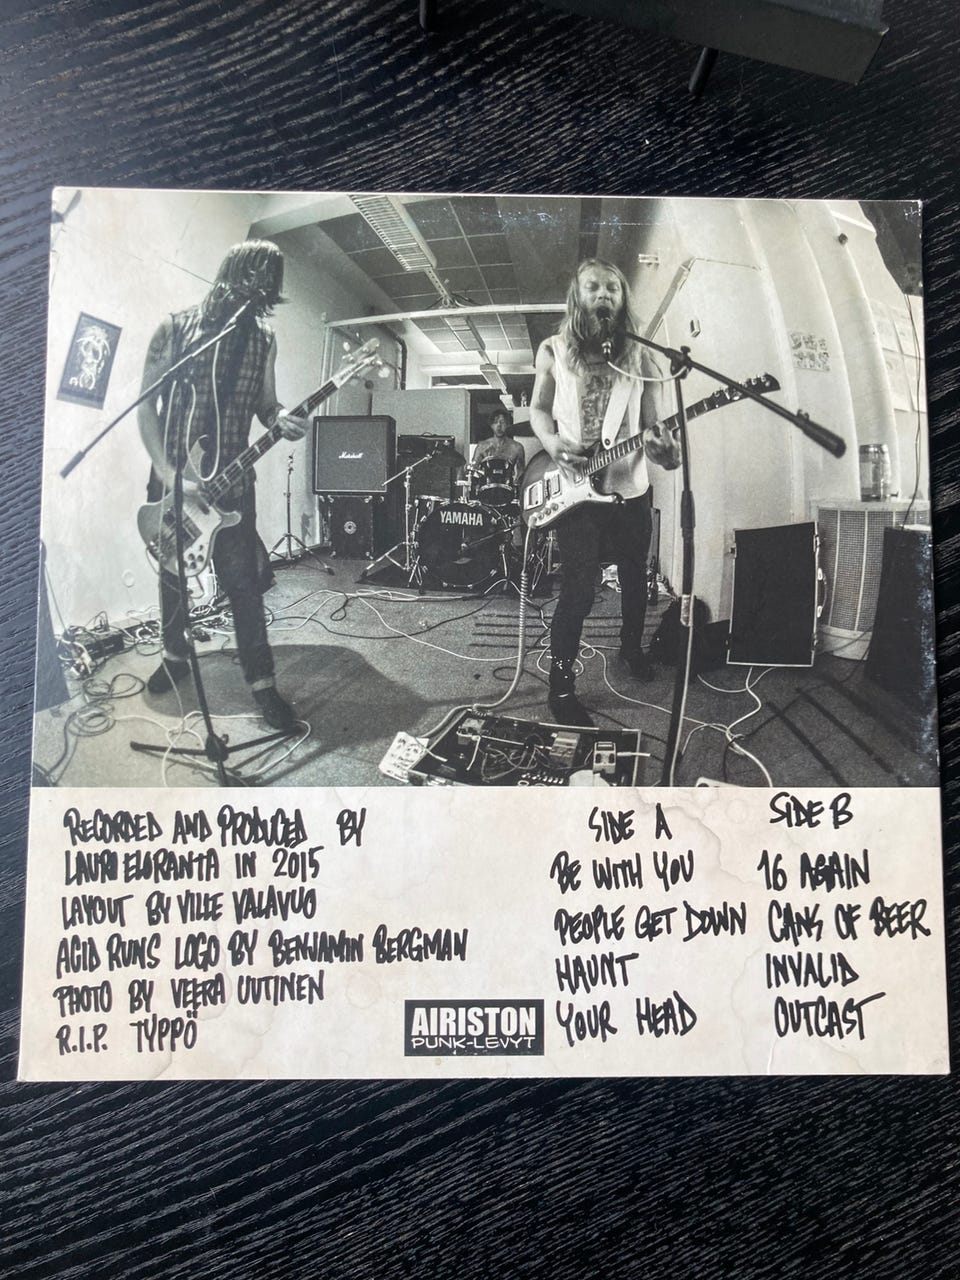 Marshall
YAMAHA
RECORDED AND PRODUCED BY
LAURI ELORANTA IN 2015
LAYOUT BY VILLE VALAVUO
ACID RUNS LOGO BY BENJAMIN BERGMAN
PHOTO BY VEERA UUTINEN
R.I.P. TYPPÖ
AIRISTON
PUNK-LEVYT
SIDE A
BE WITH YOU
PEOPLE GET DOWN
HAUNT
YOUR HEAD
SIDE B
16 AGAIN
CANS OF BEER
INVALID
OUTCAST